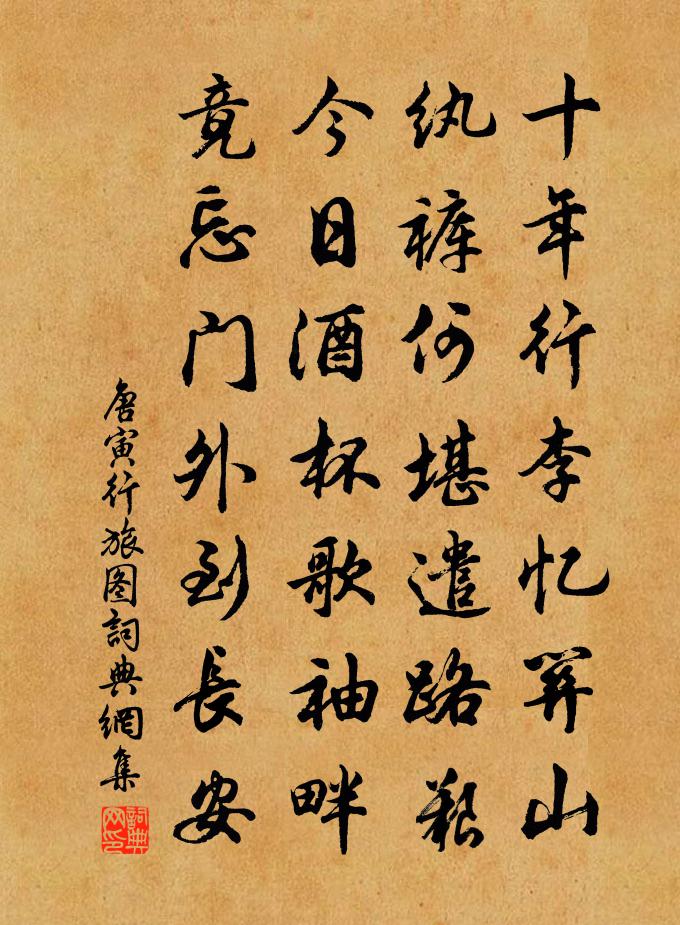 十年行李忆關山
纨裤何堪遣路艱
今日酒杯歌袖畔
竟忘门外到長安
唐寅行旅图詞典網集
詞典网印